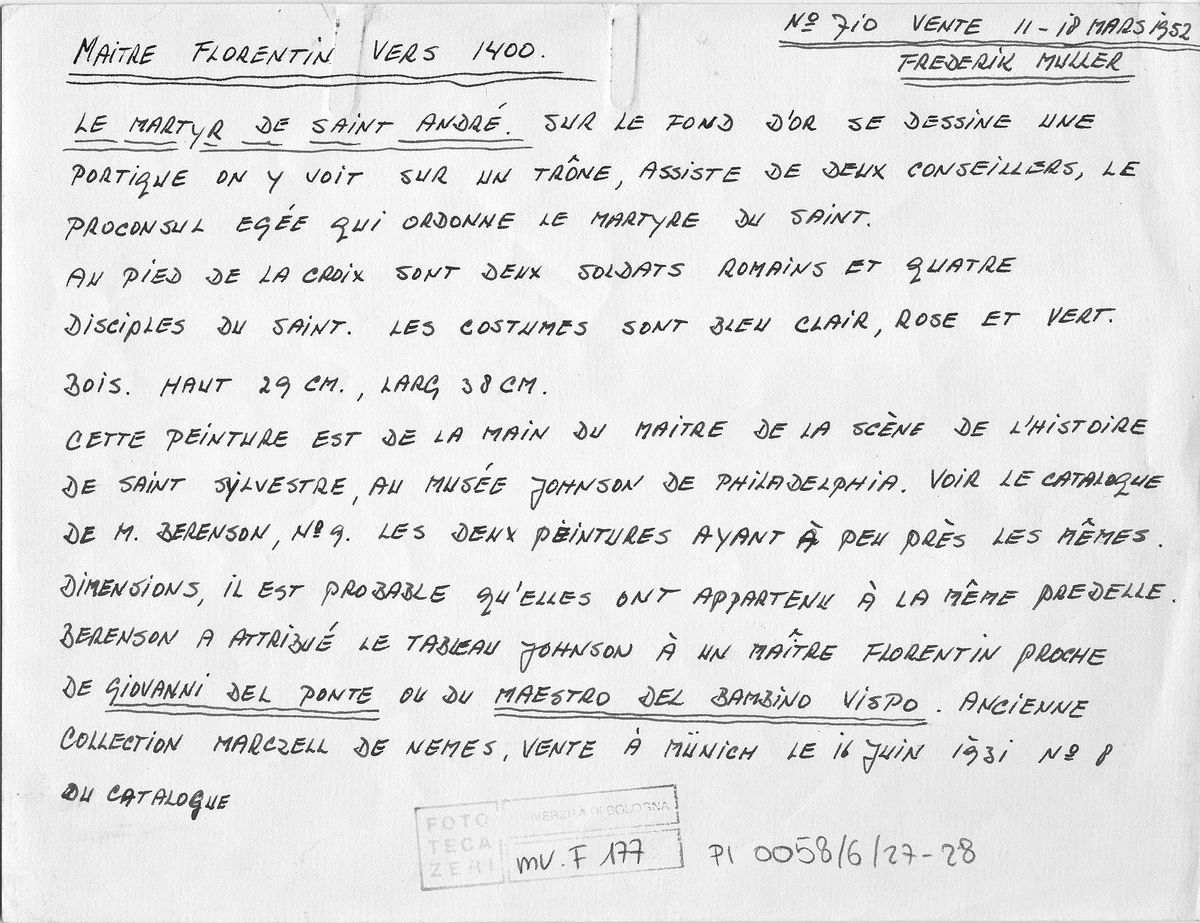 Nº 710 VENTE 11-18 MARS 1952
FREDERIK MULLER
MAITRE FLORENTIN VERS 1400.
LE MARTYR DE SAINT ANDRÉ. SUR LE FOND D'OR SE DESSINE UNE
PORTIQUE ON Y VOIT SUR UN TRÔNE, ASSISTE DE DEUX CONSEILLERS, LE
PROCONSUL EGÉE QUI ORDONNE LE MARTYRE DU SAINT.
AU PIED DE LA CROIX SONT DEUX SOLDATS ROMAINS ET QUATRE
DISCIPLES DU SAINT. LES COSTUMES SONT BLEU CLAIR, ROSE ET VERT.
BOIS. HAUT 29 CM., LARG 38 CM.
CETTE PEINTURE EST DE LA MAIN DU MAITRE DE LA SCÈNE DE L'HISTOIRE
DE SAINT SYLVESTRE, AU MUSÉE JOHNSON DE PHILADELPHIA. VOIR LE CATALOGUE
DE M. BERENSON, Nº 9. LES DEUX PEINTURES AYANT À PEU PRÈS LES MÊMES.
DIMENSIONS, IL EST PROBABLE QU'ELLES ONT APPARTENU À LA MÊME PREDELLE.
BERENSON A ATTRIBUÉ LE TABLEAU JOHNSON À UN MAÎTRE FLORENTIN PROCHE
DE GIOVANNI DEL PONTE OU DU MAESTRO DEL BAMBINO VISPO. ANCIENNE
COLLECTION MARCZELL DE NEMES, VENTE À MÜNICH LE 16 JUIN 1931 Nº 8
DU CATALOGUE
FOTO
TECA
ZERI
UNIVERSITÀ DI BOLOGNA
INV. F 177
PI 0058/6/27-28